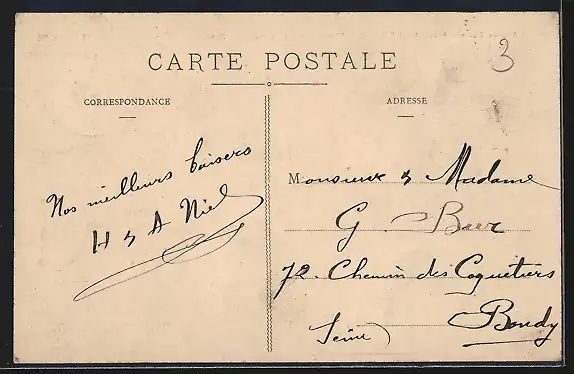 3
CARTE POSTALE
CORRESPONDANCE
ADRESSE
Nos meilleurs baisers
H & A Niel
Monsieur & Madame
G. Baer
72. Chemin des Coquetiers
Bondy
Seine